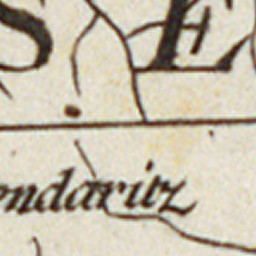 S E
endaritz